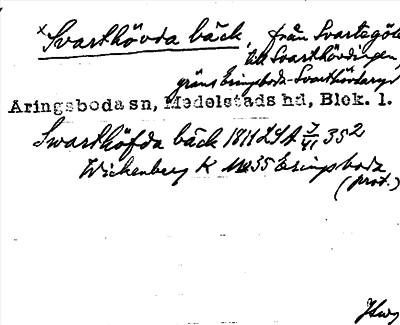 x Svarthövda bäck, från Svartegöl
till Svarthövdingen,
gräns Eringsboda-Svarthövdaryd
Aringsboda sn, Medelstads hd, Blek. l.
Swarthöfda bäck 1811 LSA 7/VI 352
Wickenberg K Eringsboda
(prot.)